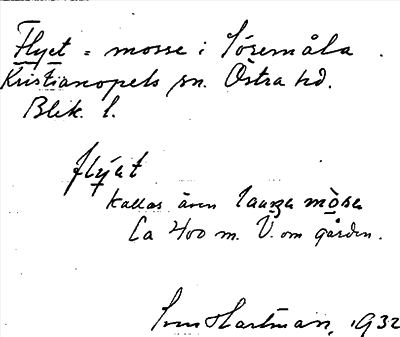 Flyet = mosse i Söremåla.
Kristianopels sn. Östra hd.
Blek. l.
flyet
kallas även laanga mosa
Ca 400 m. V. om gården.
Sven Hartman, 1932